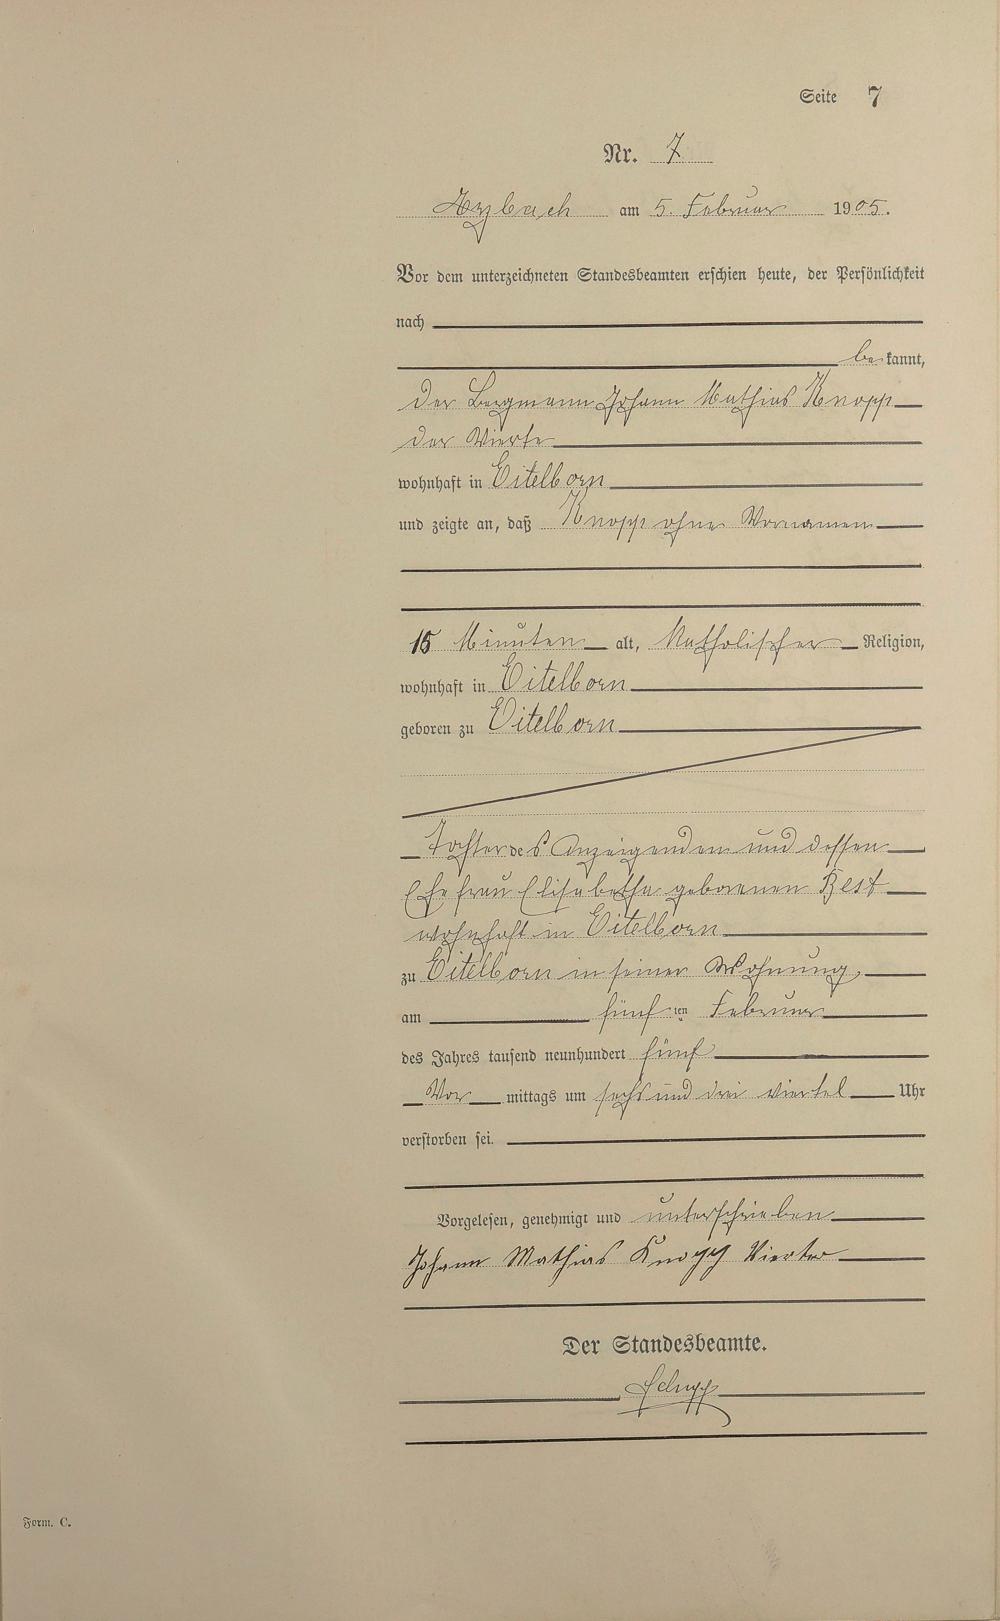 Seite 7
Nr. 7
Arzbach am 5. Februar 1905.
Vor dem unterzeichneten Standesbeamten erschien heute, der Persönlichkeit
nach
be kannt,
der Bergmann Johann Mathias Knopp
der Vierte
wohnhaft in Eitelborn
und zeigte an, daß Knopp ohne Vornamen
15 Minuten alt, katholischer Religion,
wohnhaft in Eitelborn
geboren zu Eitelborn
Tochter des Anzeigenden und dessen
Ehefrau Elisabetha geborenen Best
wohnhaft in Eitelborn
zu Eitelborn in seiner Wohnung,
am fünf ten Februar
des Jahres tausend neunhundert fünf
Vor mittags um sechs und drei viertel Uhr
verstorben sei.
Vorgelesen, genehmigt und unterschrieben
Johann Mathias Knopp Vierter
Der Standesbeamte.
Form. C.